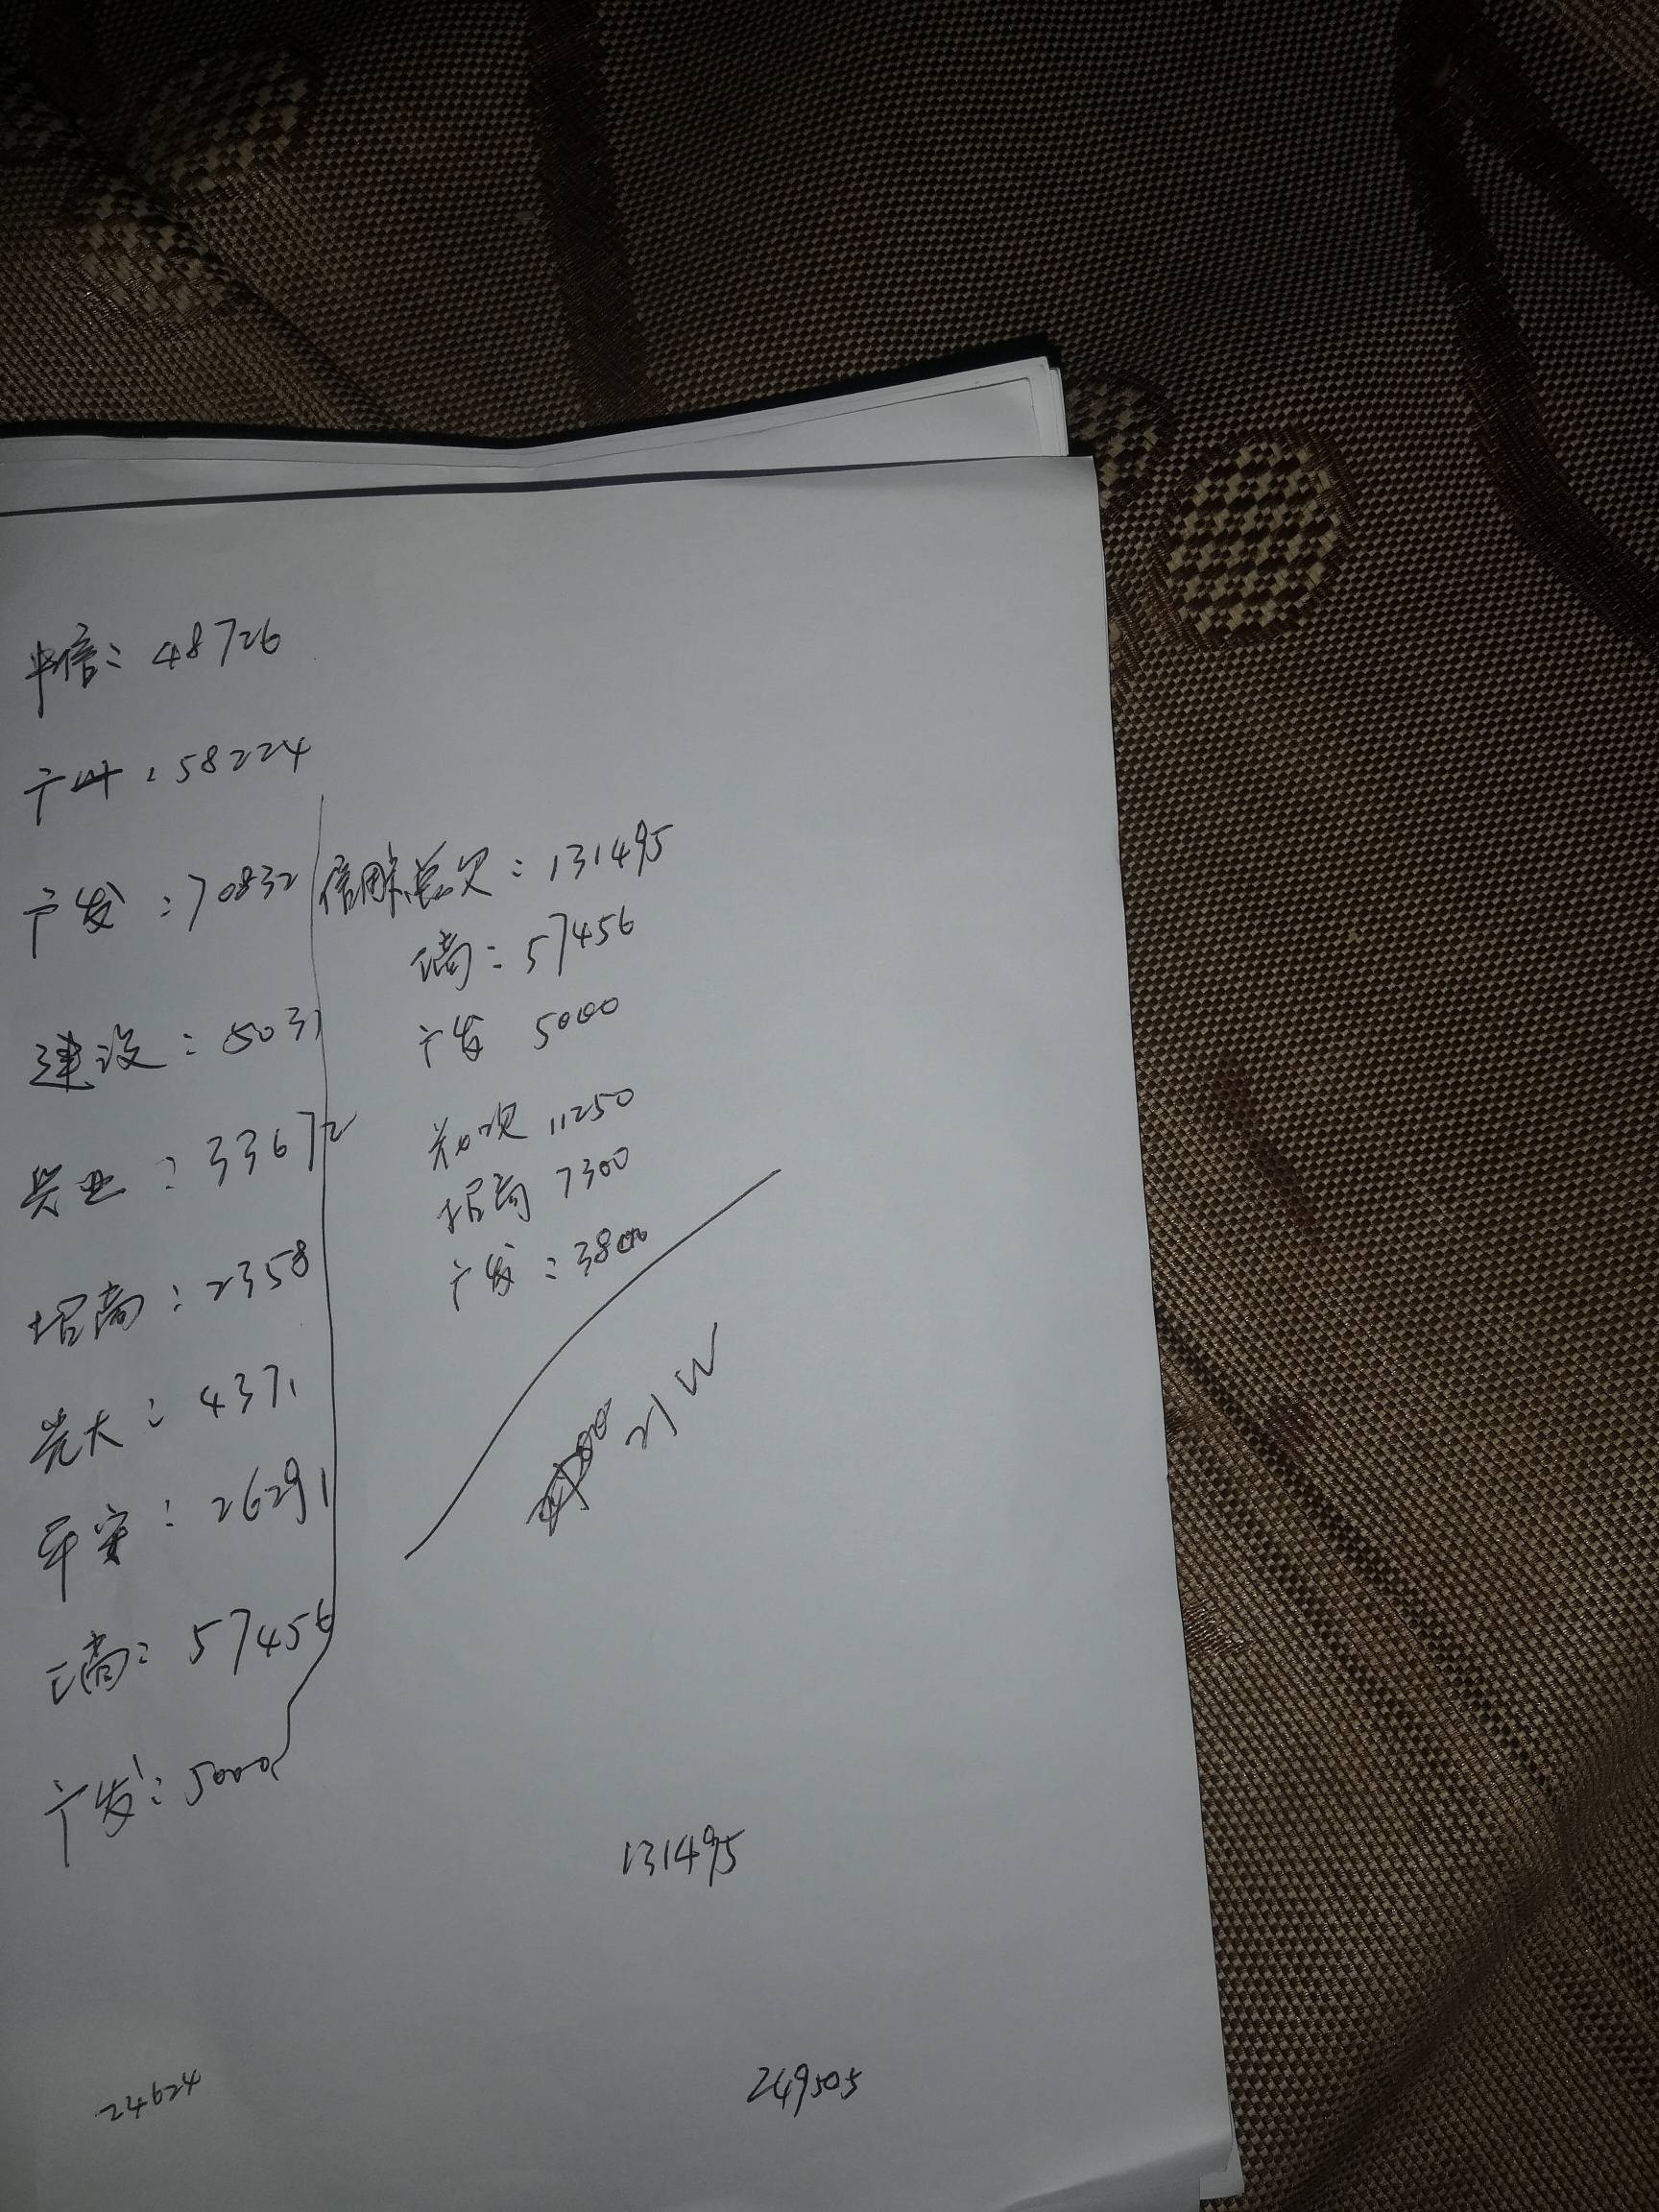 中信：48726
广州：58224
广发：70832
建设：5031
兴业：33672
招商：2358
光大：4371
平安：26291
工商：57456
广发：5000
信用卡总欠：131495
工商：57456
广发 5000
初次 11250
招商 7300
广发：3800
21W
131495
24624
249505